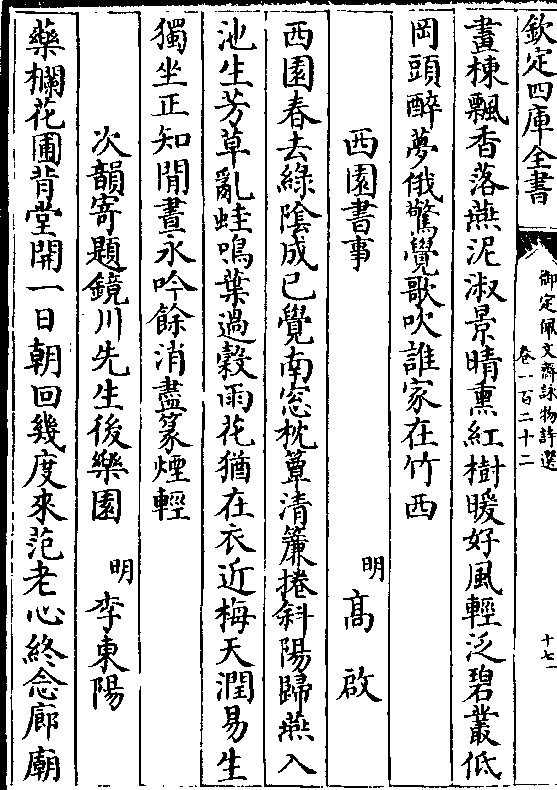 欽定四庫全書
御定佩文齋詠物詩選
卷一百二十二
十七
畫棟飄香落燕泥淑景晴熏紅樹暖好風輕泛碧叢低
岡頭醉夢俄驚覺歌吹誰家在竹西
西園書事
明 高啟
西園春去綠陰成已覺南窓枕簟清簾捲斜陽歸燕入
池生芳草亂蛙鳴葉過穀雨花猶在衣近梅天潤易生
獨坐正知閒晝永吟餘消盡篆煙輕
次韻寄題鏡川先生後樂園
明 李東陽
藥欄花圃背堂開一日朝回幾度來范老心終念廊廟